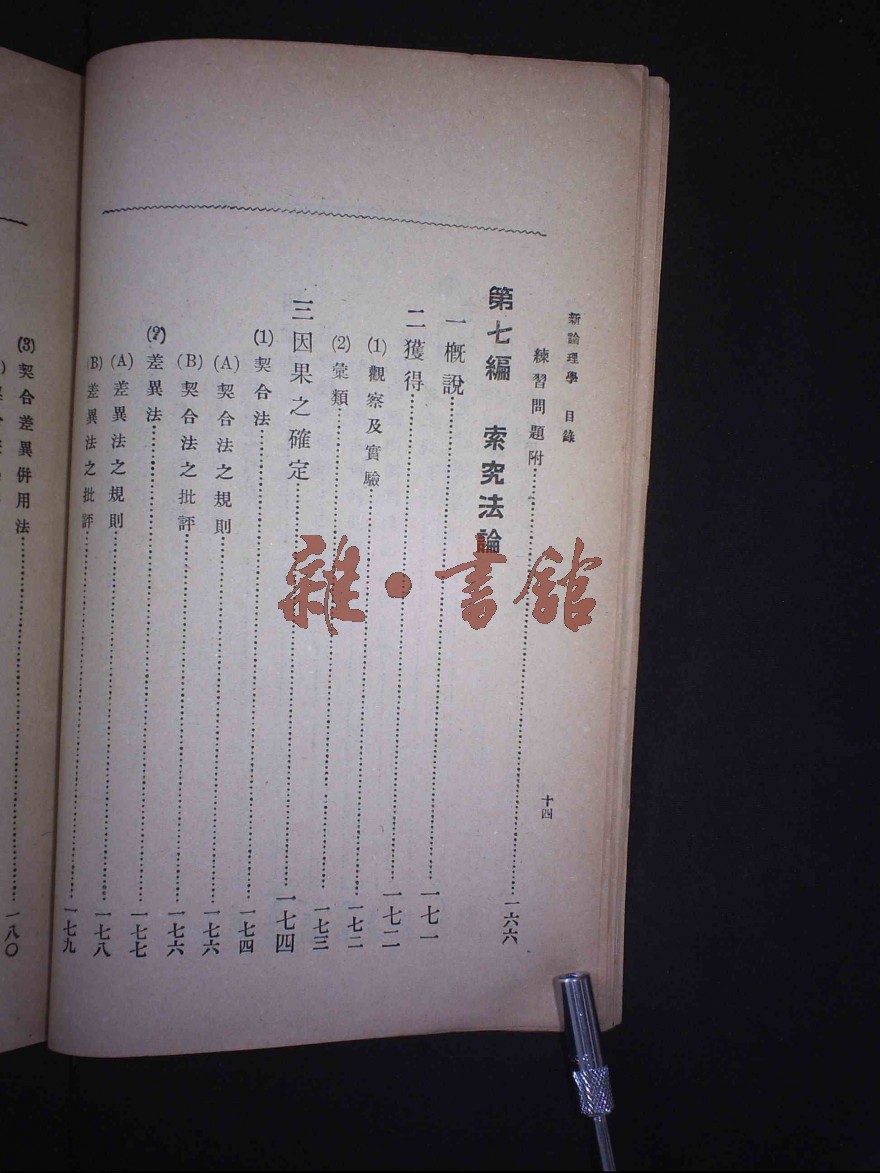 新論理學 目錄
十四
練習問題附……一六六
第七編 索究法論
一 槪說……一七一
二 獲得……一七二
(1) 觀察及實驗……一七二
(2) 彙類……一七三
三 因果之確定……一七四
(1) 契合法……一七四
(A) 契合法之規則……一七六
(B) 契合法之批評……一七六
(2) 差異法……一七七
(A) 差異法之規則……一七八
(B) 差異法之批評……一七九
(3) 契合差異併用法……一八〇
雜·書館